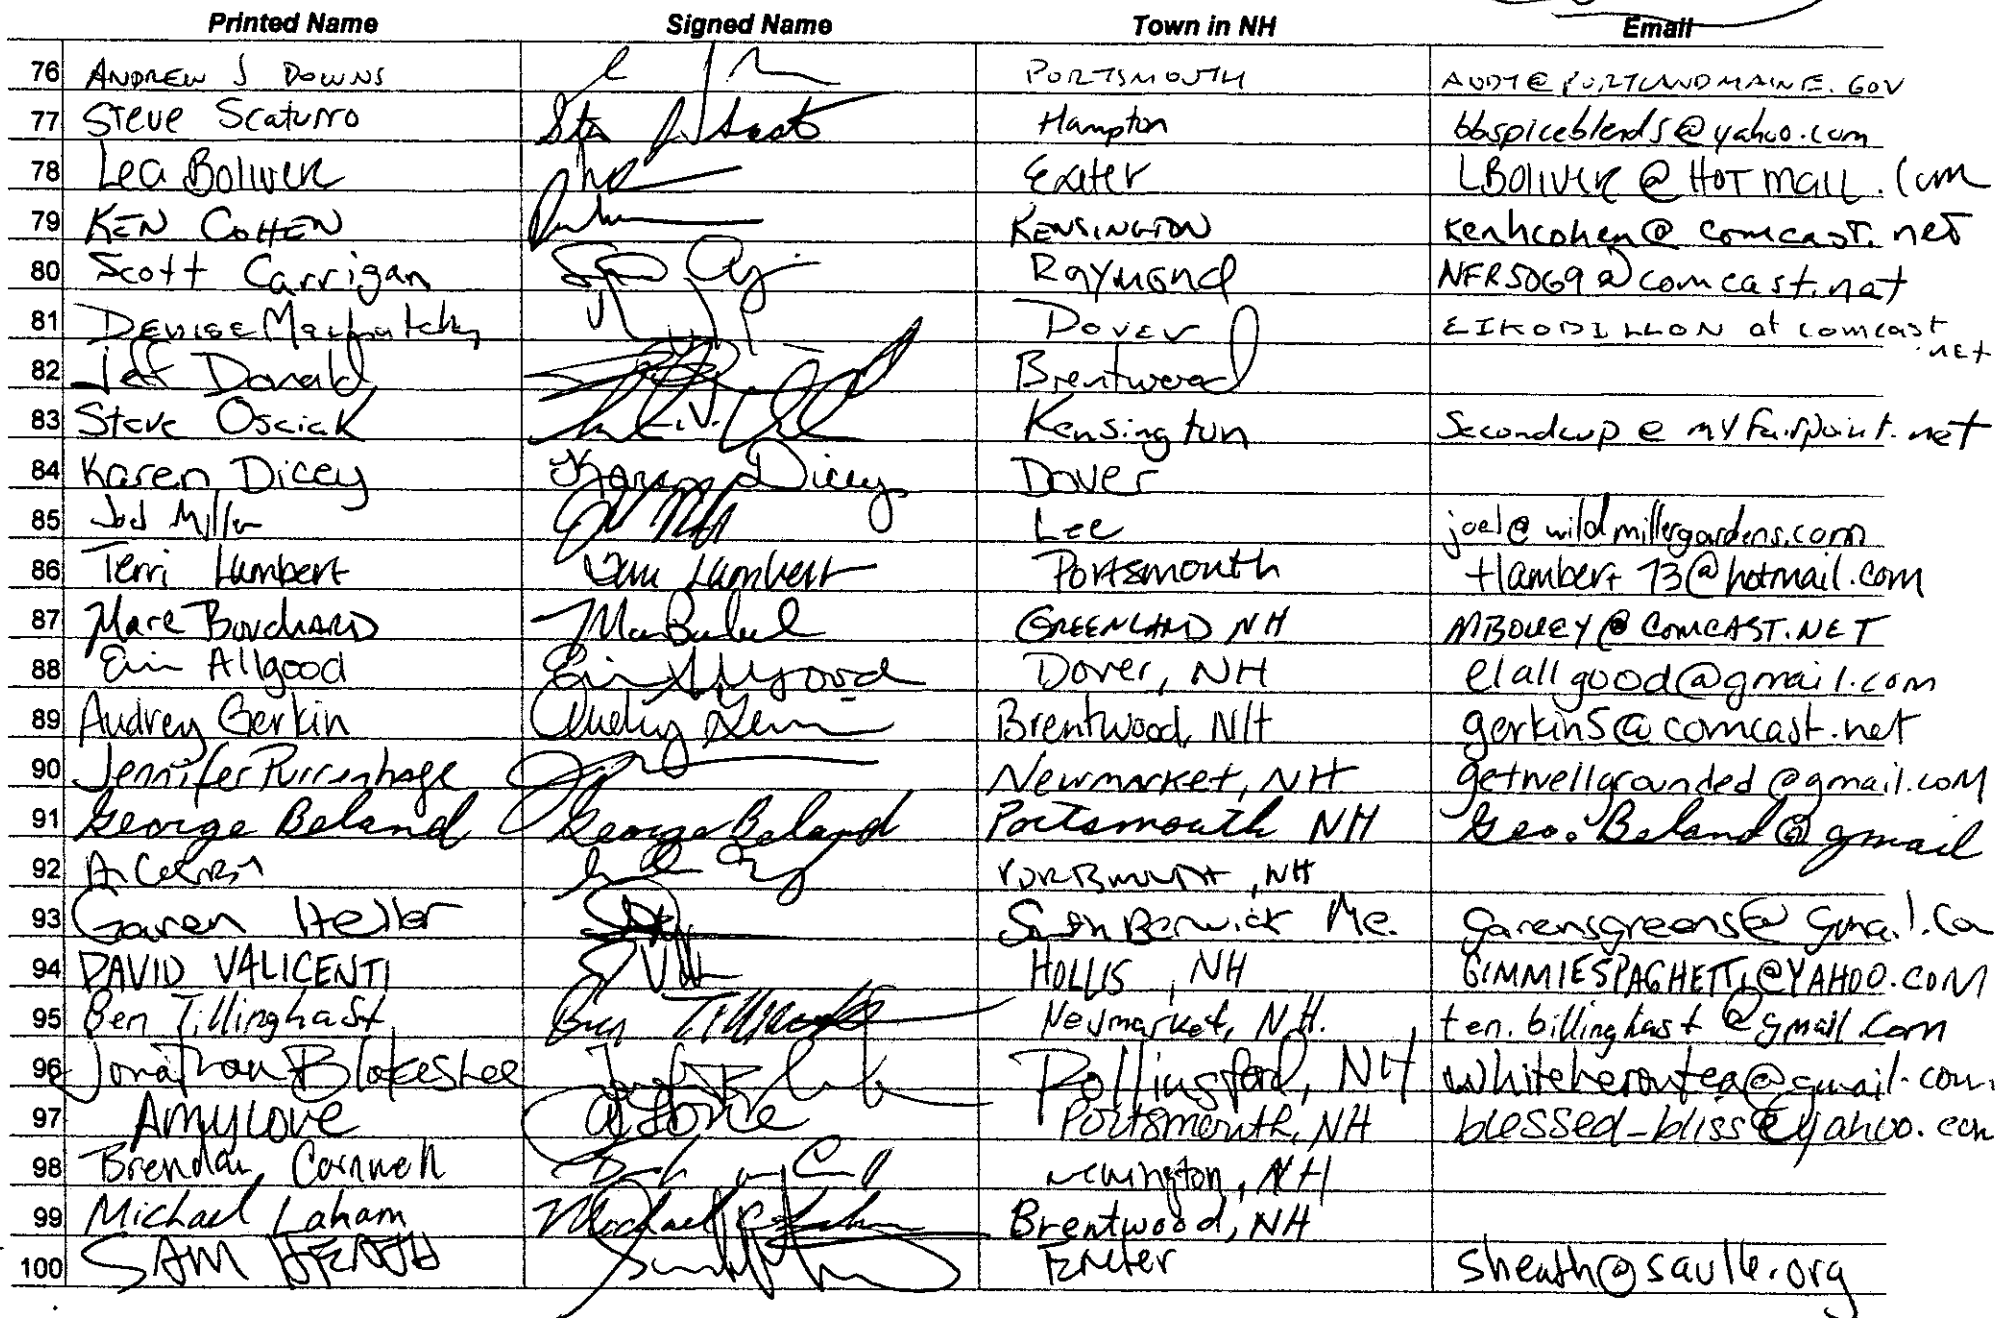 Printed Name Signed Name Town in NH Email
76 ANDREW J DOWNS PORTSMOUTH @PORTLANDMAINE.GOV
77 Steve Scaturro Hampton bbspiceblends@yahoo.com
78 Lea Boliver Exeter LBOliver@HOTmail.com
79 KEN COHEN KENSINGTON kenhcohen@comcast.net
80 Scott Carrigan Raymond NFR5069@comcast.net
81 DENISE Dover EIKODILLON at comcast.net
82 Jef Donald Brentwood
83 Steve Osciak Kensington Secondcup@myfairpoint.net
84 Karen Dicey Karen Dicey Dover
85 Joel Miller Lee joel@wildmillergardens.com
86 Terri Lambert Terri Lambert Portsmouth tlambert73@hotmail.com
87 Marc Bouchard GREENLAND NH MBOUEY@COMCAST.NET
88 Erin Allgood Erin Allgood Dover, NH elallgood@gmail.com
89 Audrey Gerkin Audrey Brentwood, NH gerkin5@comcast.net
90 Jennifer Purrenhage Newmarket, NH getwellgrounded@gmail.com
91 George Beland George Beland Portsmouth NH Geo.Beland@gmail
92 PORTSMOUTH, NH
93 Garen Heller South Berwick Me. garensgreens@gmail.co
94 DAVID VALICENTI HOLLIS, NH GIMMIESPAGHETTI@YAHOO.COM
95 Ben Tillinghast Ben Tillinghast Newmarket, N.H. ten.billinghast@gmail.com
96 Jonathan Blakeslee Rollinsford, NH whiteherontea@gmail.com
97 Amy Love Portsmouth, NH blessed_bliss@yahoo.com
98 Brendan Cornwell Newington, NH
99 Michael Laham Michael Brentwood, NH
100 SAM HEATH Exeter sheath@saulle.org